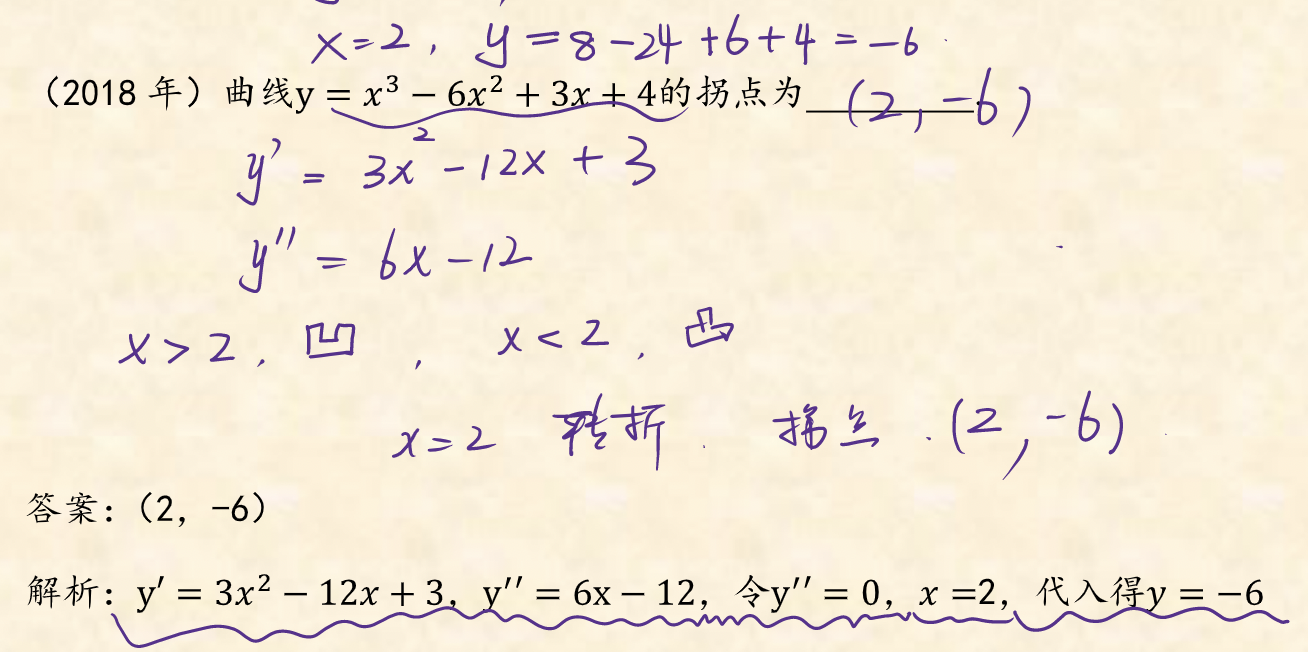 x=2, y=8-24+6+4=-6
（2018 年）曲线y = x³ − 6x² + 3x + 4的拐点为________ (2, -6)
y' = 3x² - 12x + 3
y'' = 6x - 12
x > 2, 凹, x < 2, 凸
x=2 转折. 拐点.(2, -6)
答案：（2，-6）
解析：y′ = 3x² − 12x + 3，y′′ = 6x − 12，令y′′ = 0，x =2，代入得y = −6